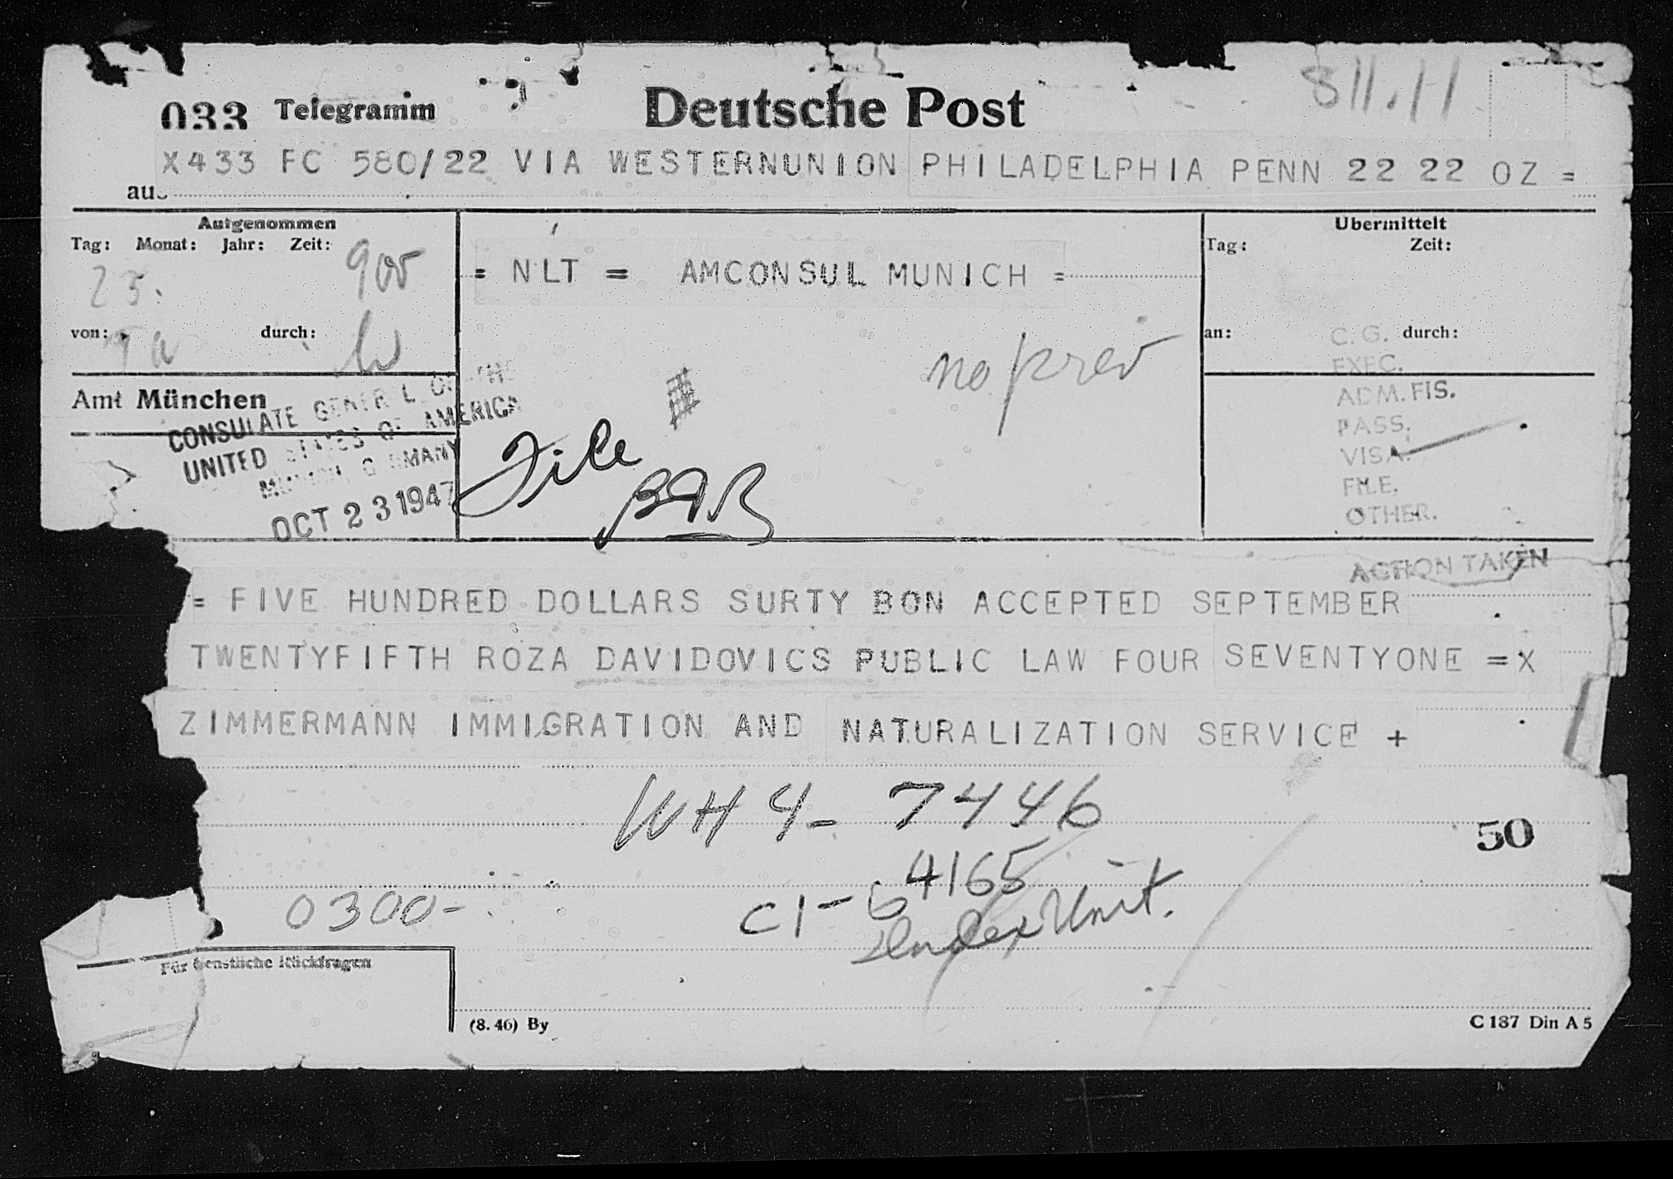 033 Telegramm Deutsche Post 811.11
X433 FC 580/22 VIA WESTERNUNION PHILADELPHIA PENN 22 22 OZ =
aus
Aufgenommen
Tag: Monat: Jahr: Zeit:
23. 900
von: durch:
Amt München
CONSULATE GENERAL OF THE
UNITED STATES OF AMERICA
MUNICH, GERMANY
OCT 23 1947
= NLT = AMCONSUL MUNICH =
no prev
File
Übermittelt
Tag: Zeit:
an: durch:
C.G.
EXEC.
ADM. FIS.
PASS.
VISA.
FILE.
OTHER.
ACTION TAKEN
= FIVE HUNDRED DOLLARS SURTY BON ACCEPTED SEPTEMBER
TWENTYFIFTH ROZA DAVIDOVICS PUBLIC LAW FOUR SEVENTYONE = X
ZIMMERMANN IMMIGRATION AND NATURALIZATION SERVICE +
WH4-7446
50
4165
0300-
C1-6
Index Unit.
Für dienstliche Rückfragen
(8.46) By
C 187 Din A 5